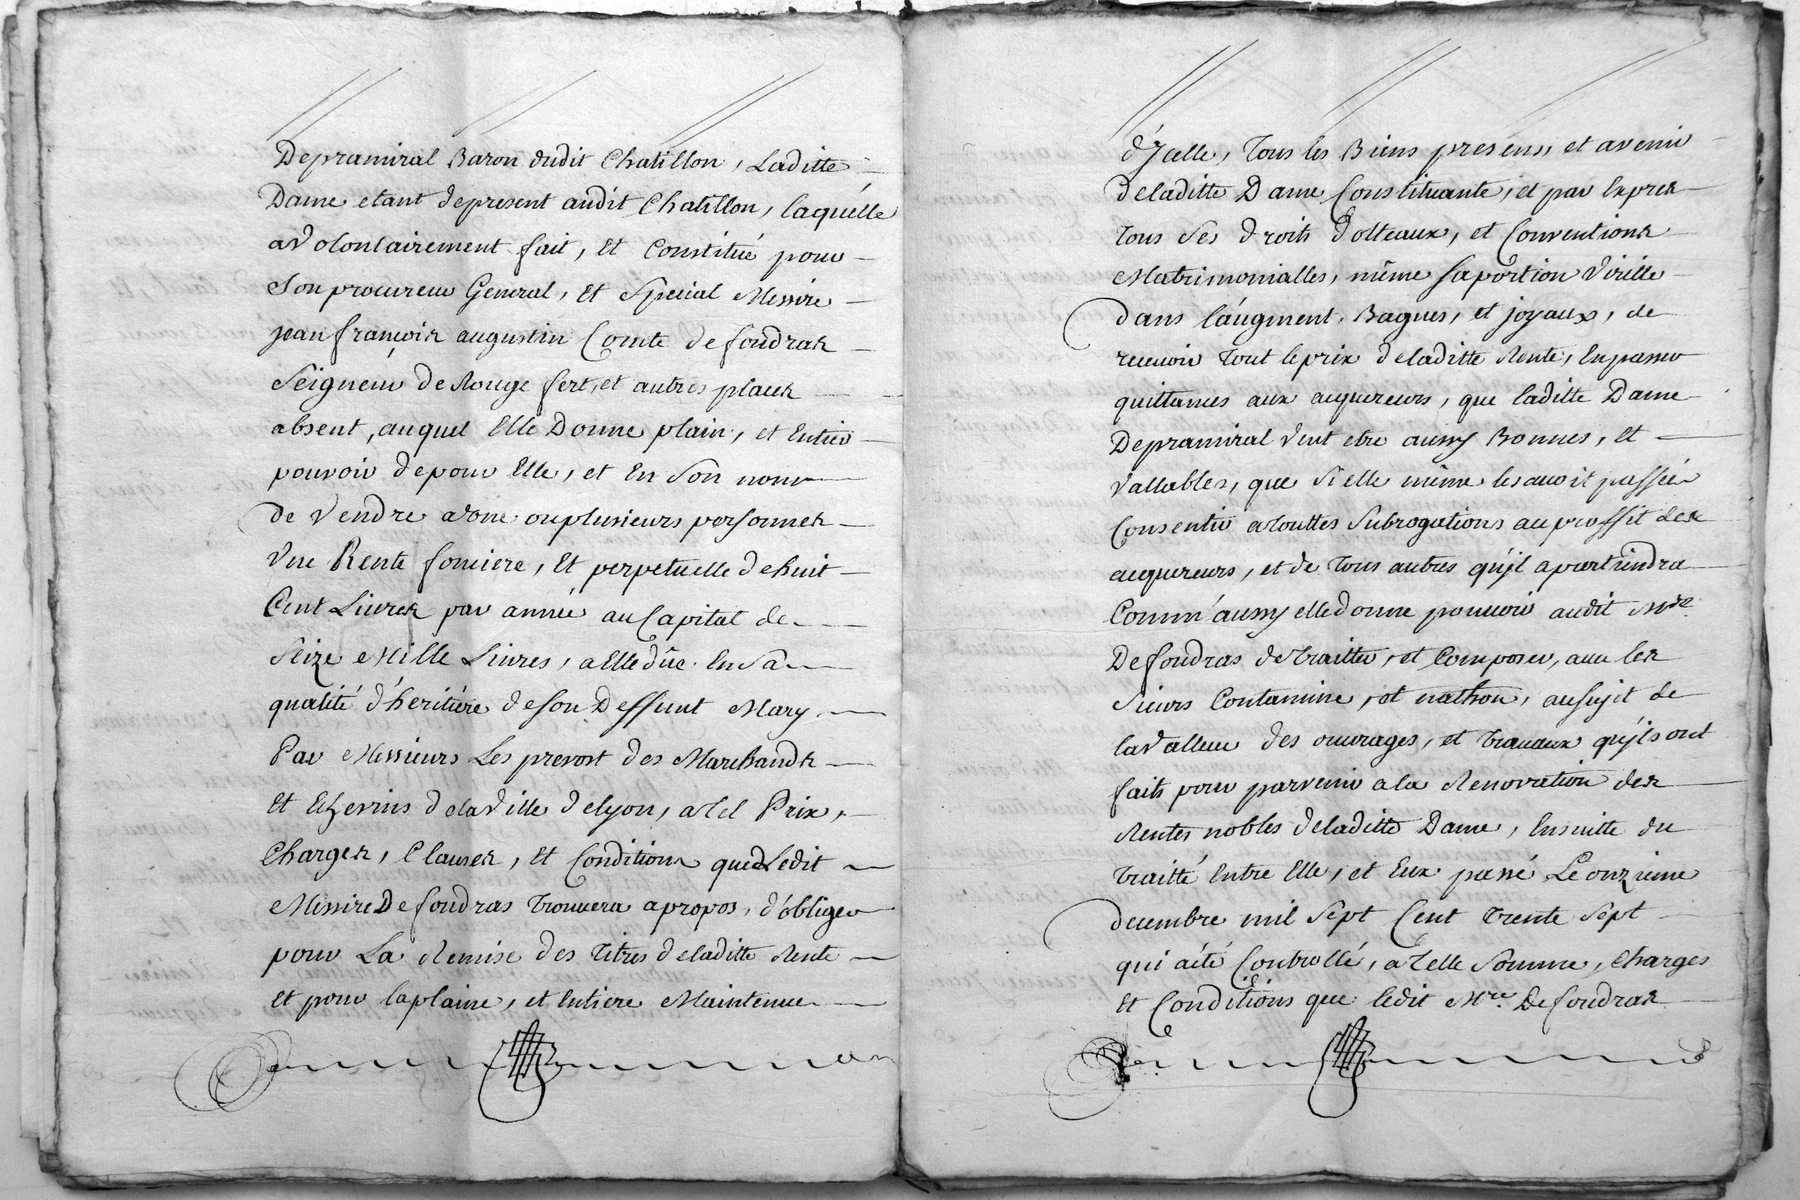 Depramiral Baron dudit Chatillon, Laditte
Dame etant depresent audit Chatillon, laquelle
avolontairement fait, et Constitué pour
Son procureur General, et Special Messire
jean françois augustin Comte de foudras
Seigneur de Rouge fert, et autres places
absent, auquel Elle Donne plain, et Entier
pouvoir depour Elle, et En Son nom
de Vendre avone ouplusieurs personnes
Une Rente fonciere, Et perpetuelle dehuit
Cent Livres par année au Capital de
Seize Mille Livres, a Elle dûe En Sa
qualité d'heritiere deson Deffunt Mary
Par Messieurs Les prevost des Marchands
Et Echevins delaville delyon, atel Prix,
Charges, Clauses, Et Conditions que Ledit
Messire Defoudras Trouvera apropos, d'obliger
pour La Remise des Titres deladitte Rente
Et pour laplaine, et Entiere Maintenue
d'Jcelle, Tous les Biens presens, et avenir
deladitte Dame Constituante, et par Expres
Tous Ses droits dotteaux, et Conventions
Matrimonialles, même saportion Virille
dans l'augment, Bagues, et joyaux, de
recevoir Tout leprix deladitte Rente, Enpasser
quittances aux acquereurs, que laditte Dame
Depramiral Veut etre aussy Bonnes, Et
Vallables, que Sielle même lesavoit passée
Consentir atouttes Subrogations auproffit des
acquereurs, et de Tous autres qu'jl apartiendra
Comm'aussy elledonne pouvoir audit Mre
Defoudras detraitter, et Composer, avec les
Sieurs Contamine, et nathon, ausujet de
lavalleur des ouvrages, et travaux qu'jlsont
faits pour parvenir ala Renovation des
Rentes nobles deladitte Dame, Ensuitte du
Traitté Entre Elle, et Eux passé Leonzieme
decembre mil Sept Cent Trente Sept
qui aété Controllé, atelle Somme, Charges
Et Conditions que ledit Mre Defoudras